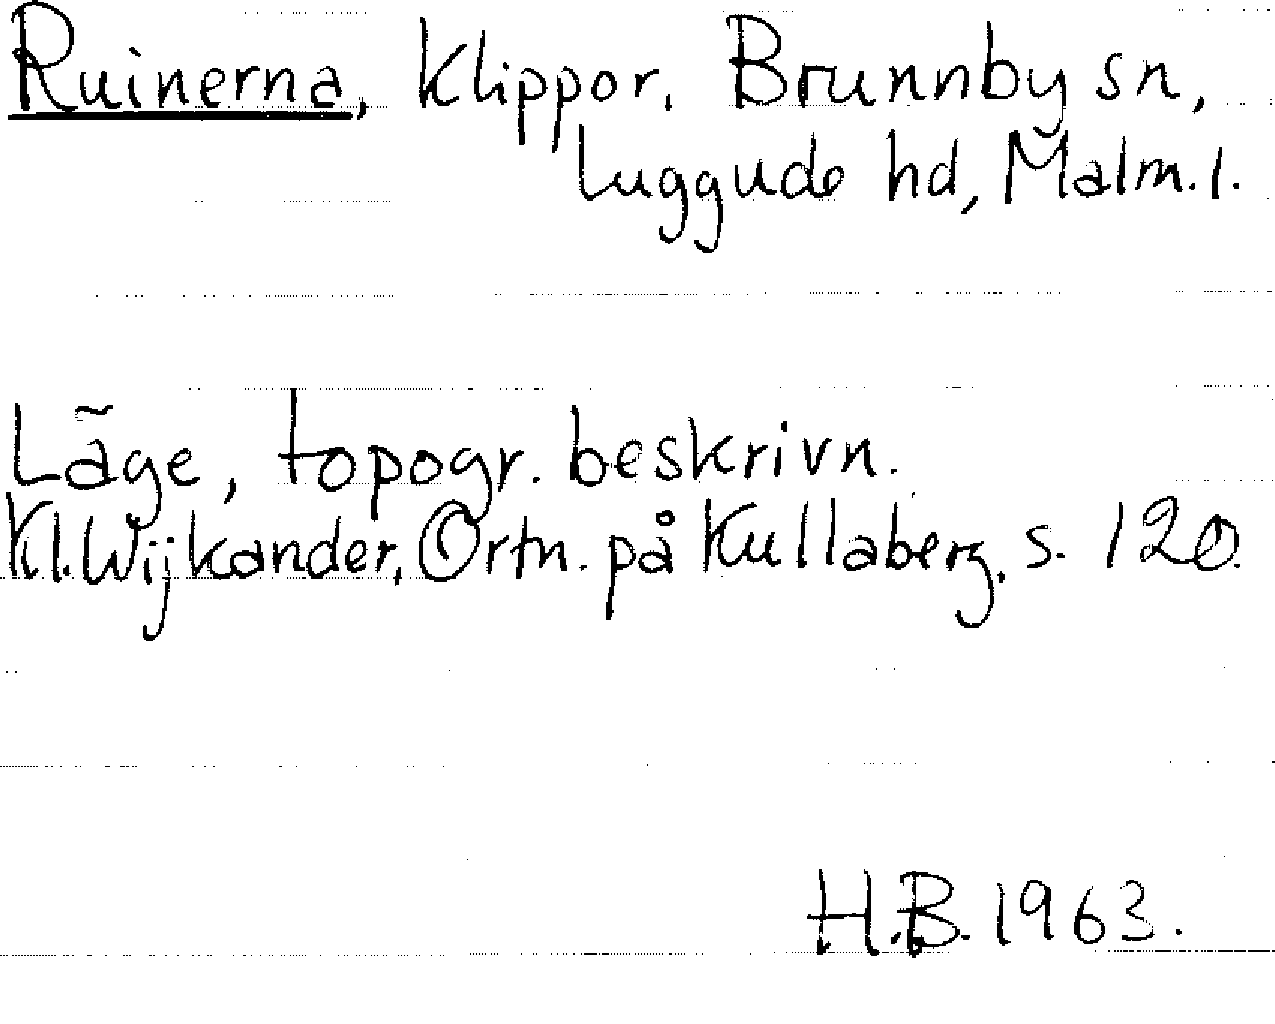 Ruinerna, Klippor, Brunnby sn,
Luggude hd, Malm. l.
Läge, topogr. beskrivn.
Kl. Wijkander, Ortn. på Kullaberg, s. 120.
H.B. 1963.